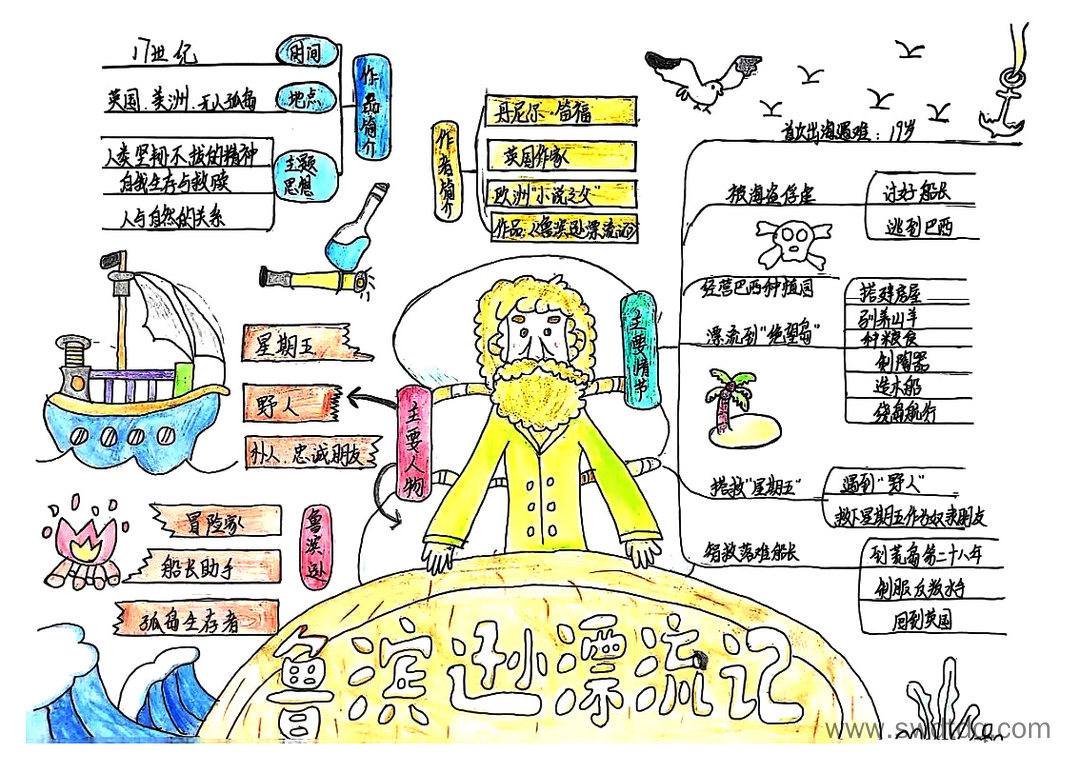 作品简介
时间
17世纪
地点
英国、美洲、无人孤岛
主题
思想
人类坚韧不拔的精神
自我生存与救赎
人与自然的关系
作者简介
丹尼尔·笛福
英国作家
欧洲"小说之父"
作品:《鲁滨逊漂流记》
主要人物
星期五
野人
仆人、忠诚朋友
鲁滨逊
冒险家
船长助手
孤岛生存者
主要情节
首次出海遇难:19岁
被海盗俘虏
讨好船长
逃到巴西
经营巴西种植园
漂流到"绝望岛"
搭建房屋
驯养山羊
种粮食
制陶器
造木船
绕岛航行
搭救"星期五"
遇到"野人"
救下星期五作为奴隶朋友
智救落难船长
到荒岛第二十八年
制服反叛水手
回到英国
鲁滨逊漂流记